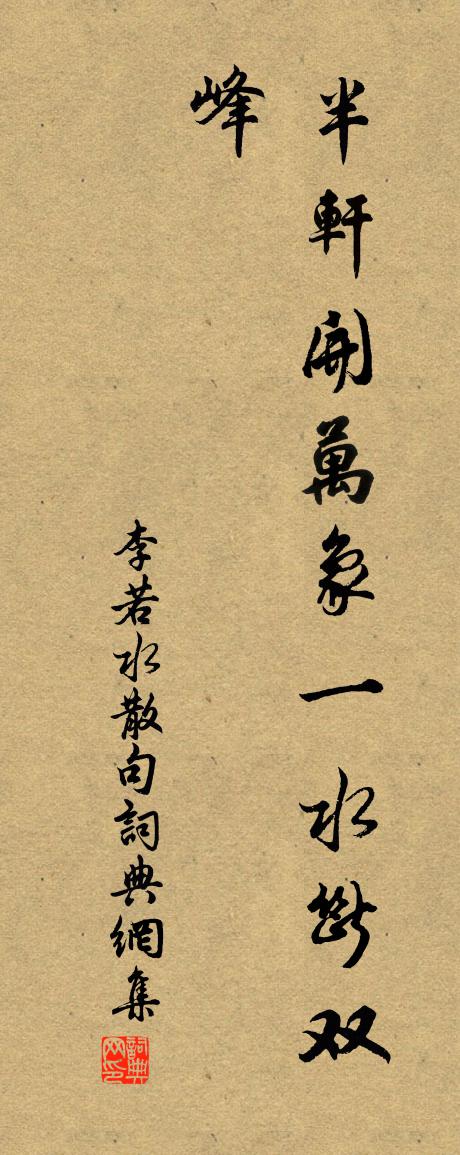 半軒開萬象一水斷双
峰
李若水散句詞典網集
詞典网印